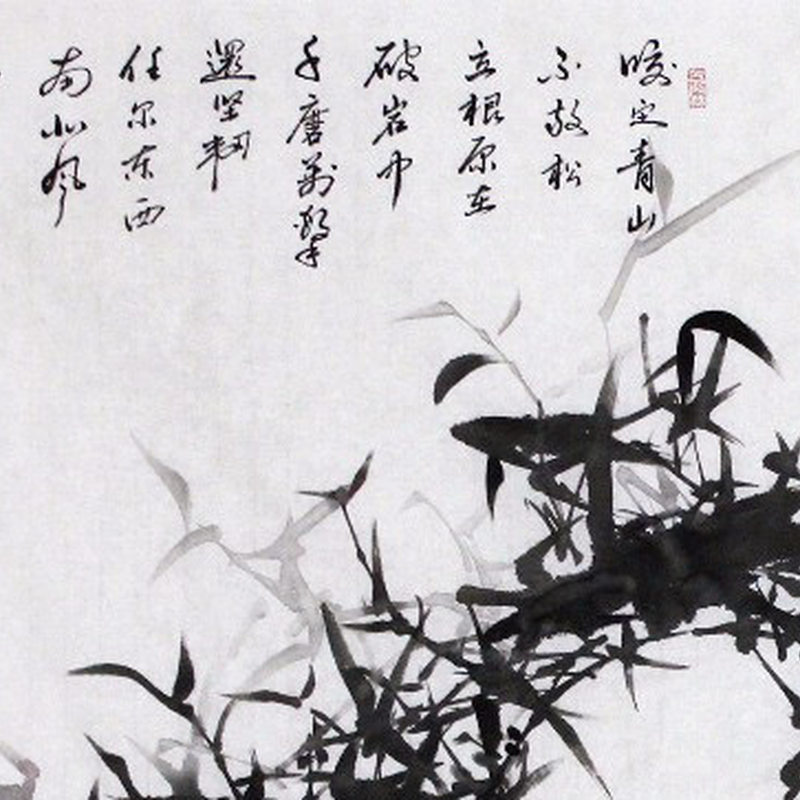 咬定青山
不放松
立根原在
破岩中
千磨萬擊
還坚韧
任尔东西
南北风